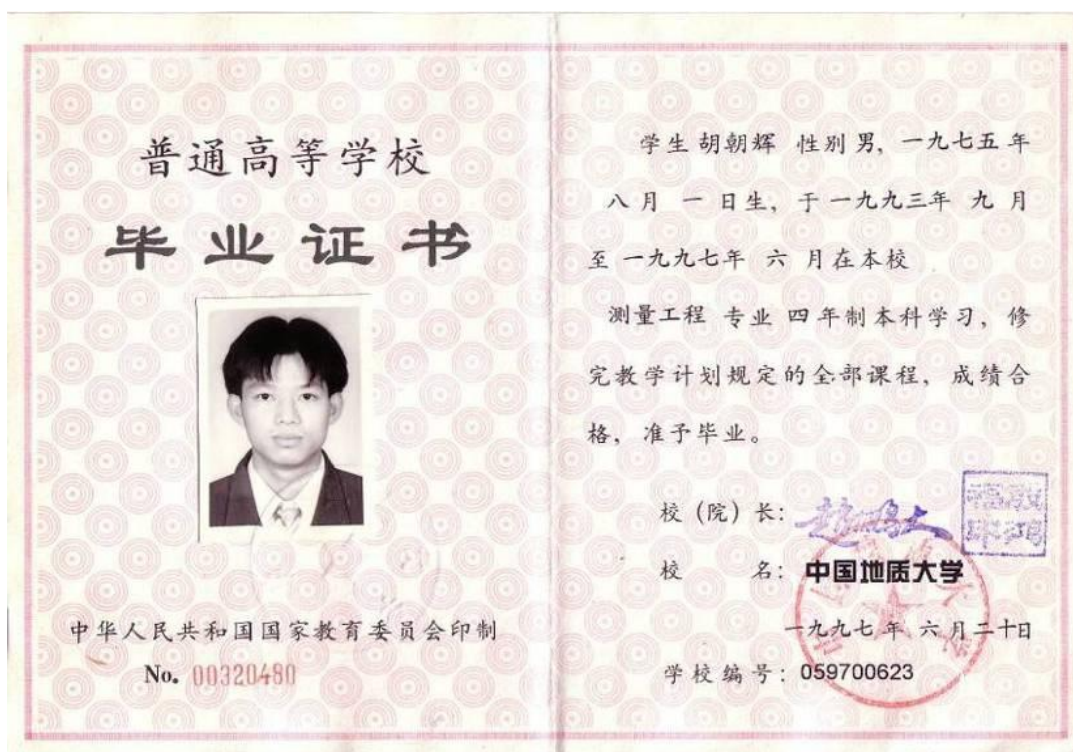 普通高等学校
毕业证书
中华人民共和国国家教育委员会印制
No. 00320480
学生 胡朝辉 性别 男, 一九七五 年
八 月 一 日生, 于 一九九三年 九 月
至 一九九七年 六 月在本校
测量工程 专业 四 年制本科学习, 修
完教学计划规定的全部课程, 成绩合
格, 准予毕业。
校 (院) 长: 赵鹏大
校 名: 中国地质大学
一九九七 年 六 月二十日
学校编号: 059700623